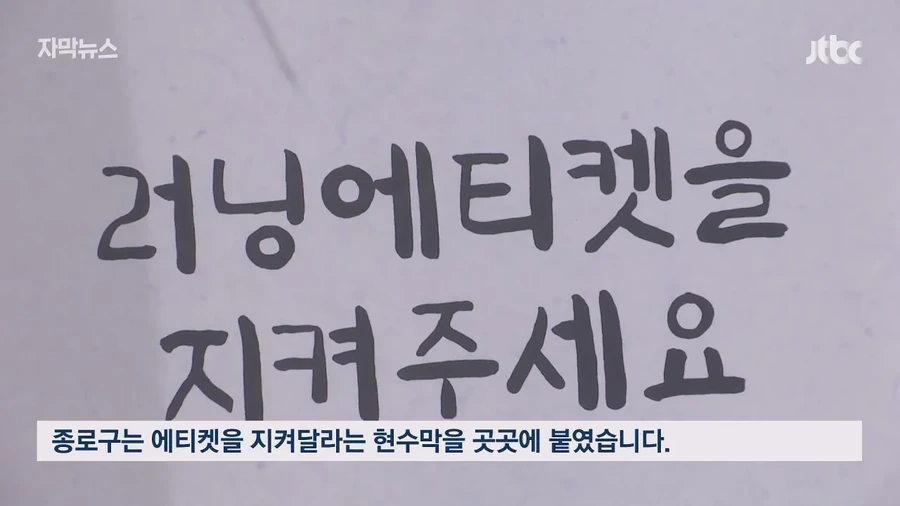 자막뉴스
jtbc
러닝에티켓을
지켜주세요
종로구는 에티켓을 지켜달라는 현수막을 곳곳에 붙였습니다.